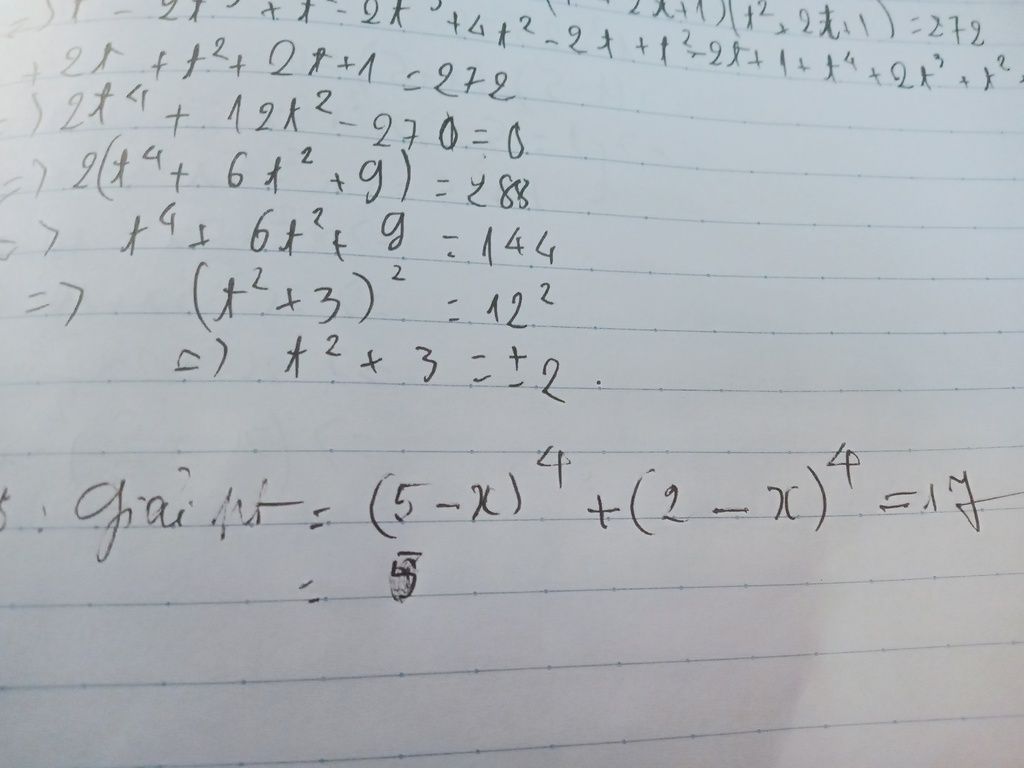 => t⁴ - 2t³ + t² - 2t³ + 4t² - 2t + t² - 2t + 1 + t⁴ + 2t³ + t²
2t + 1)(t² + 2t + 1) = 272
+ 2t + t² + 2t + 1 = 272
=> 2t⁴ + 12t² - 270 = 0
=> 2(t⁴ + 6t² + 9) = 288
=> t⁴ + 6t² + 9 = 144
=> (t² + 3)² = 12²
=> t² + 3 = ± 2.
: Giải pt = (5 - x)⁴ + (2 - x)⁴ = 17
= 5